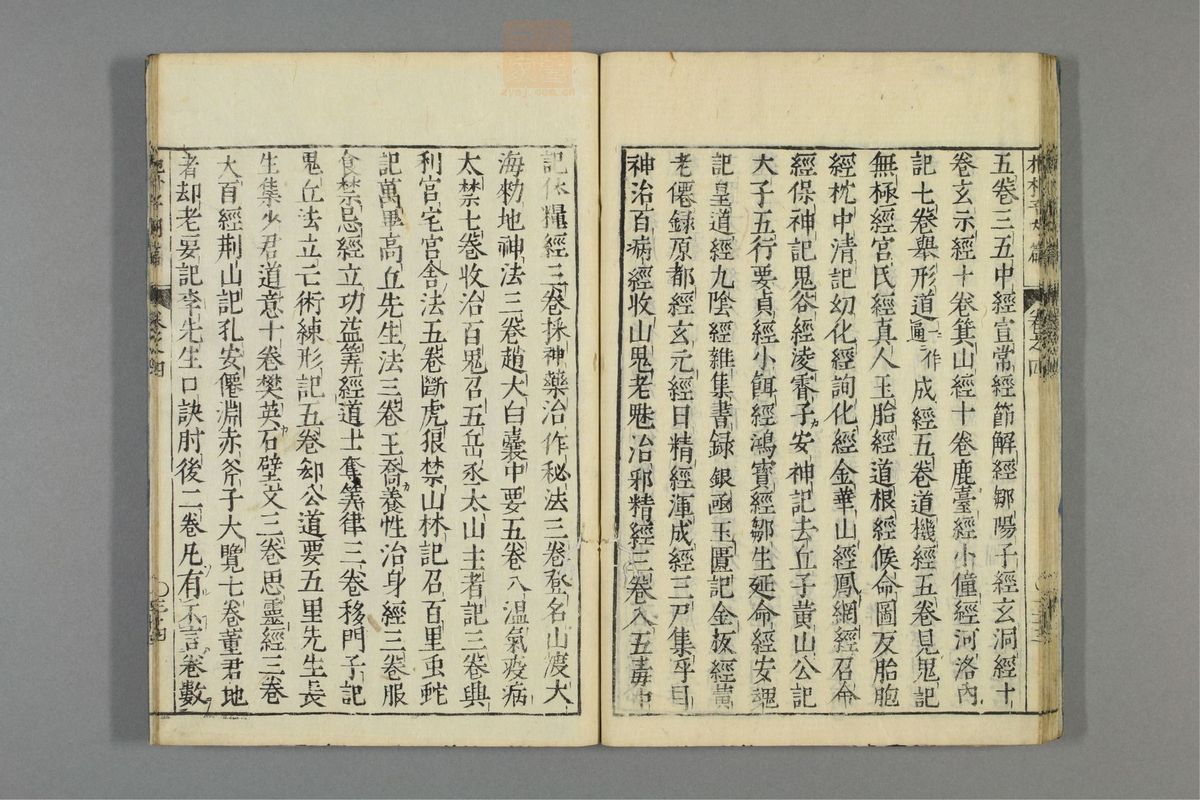 五卷三五中經宣常經節解經鄒陽子經玄洞經十
卷玄示經十卷箕山經十卷鹿臺經小僮經河洛內
記七卷舉形道一作遍成經五卷道機經五卷見鬼記
無極經宮氏經真人玉胎經道根經候命圖反胎胞
經枕中清記幻化經詢化經金華山經鳳網經召命
經保神記鬼谷經淩霄子安神記去丘子黃山公記
大子五行要貞經小餌經鴻寶經鄒生延命經安魂
記皇道經九陰經雜集書録銀函玉匱記金板經黃
老僊録原都經玄元經日精經渾成經三尸集乎耳
神治百病經收山鬼老魅治邪精經三卷入五毒中
記休糧經三卷採神藥治作秘法三卷登名山渡大
海勑地神法三卷趙大白囊中要五卷入溫氣疫病
太禁七卷收治百鬼召五岳丞太山主者記三卷興
利宮宅宮舍法五卷斷虎狼禁山林記召百里虫蛇
記萬畢高丘先生法三卷王喬養性治身經三卷服
食禁忌經立功益筭經道士奪筭律三卷移門子記
鬼丘法立亡術練形記五卷郄公道要五里先生長
生集少君道意十卷樊英石壁文三卷思靈經三卷
大百經荆山記孔安僊淵赤斧子大覽七卷董君地
者却老要記李先生口訣肘後二卷凡有不言卷數